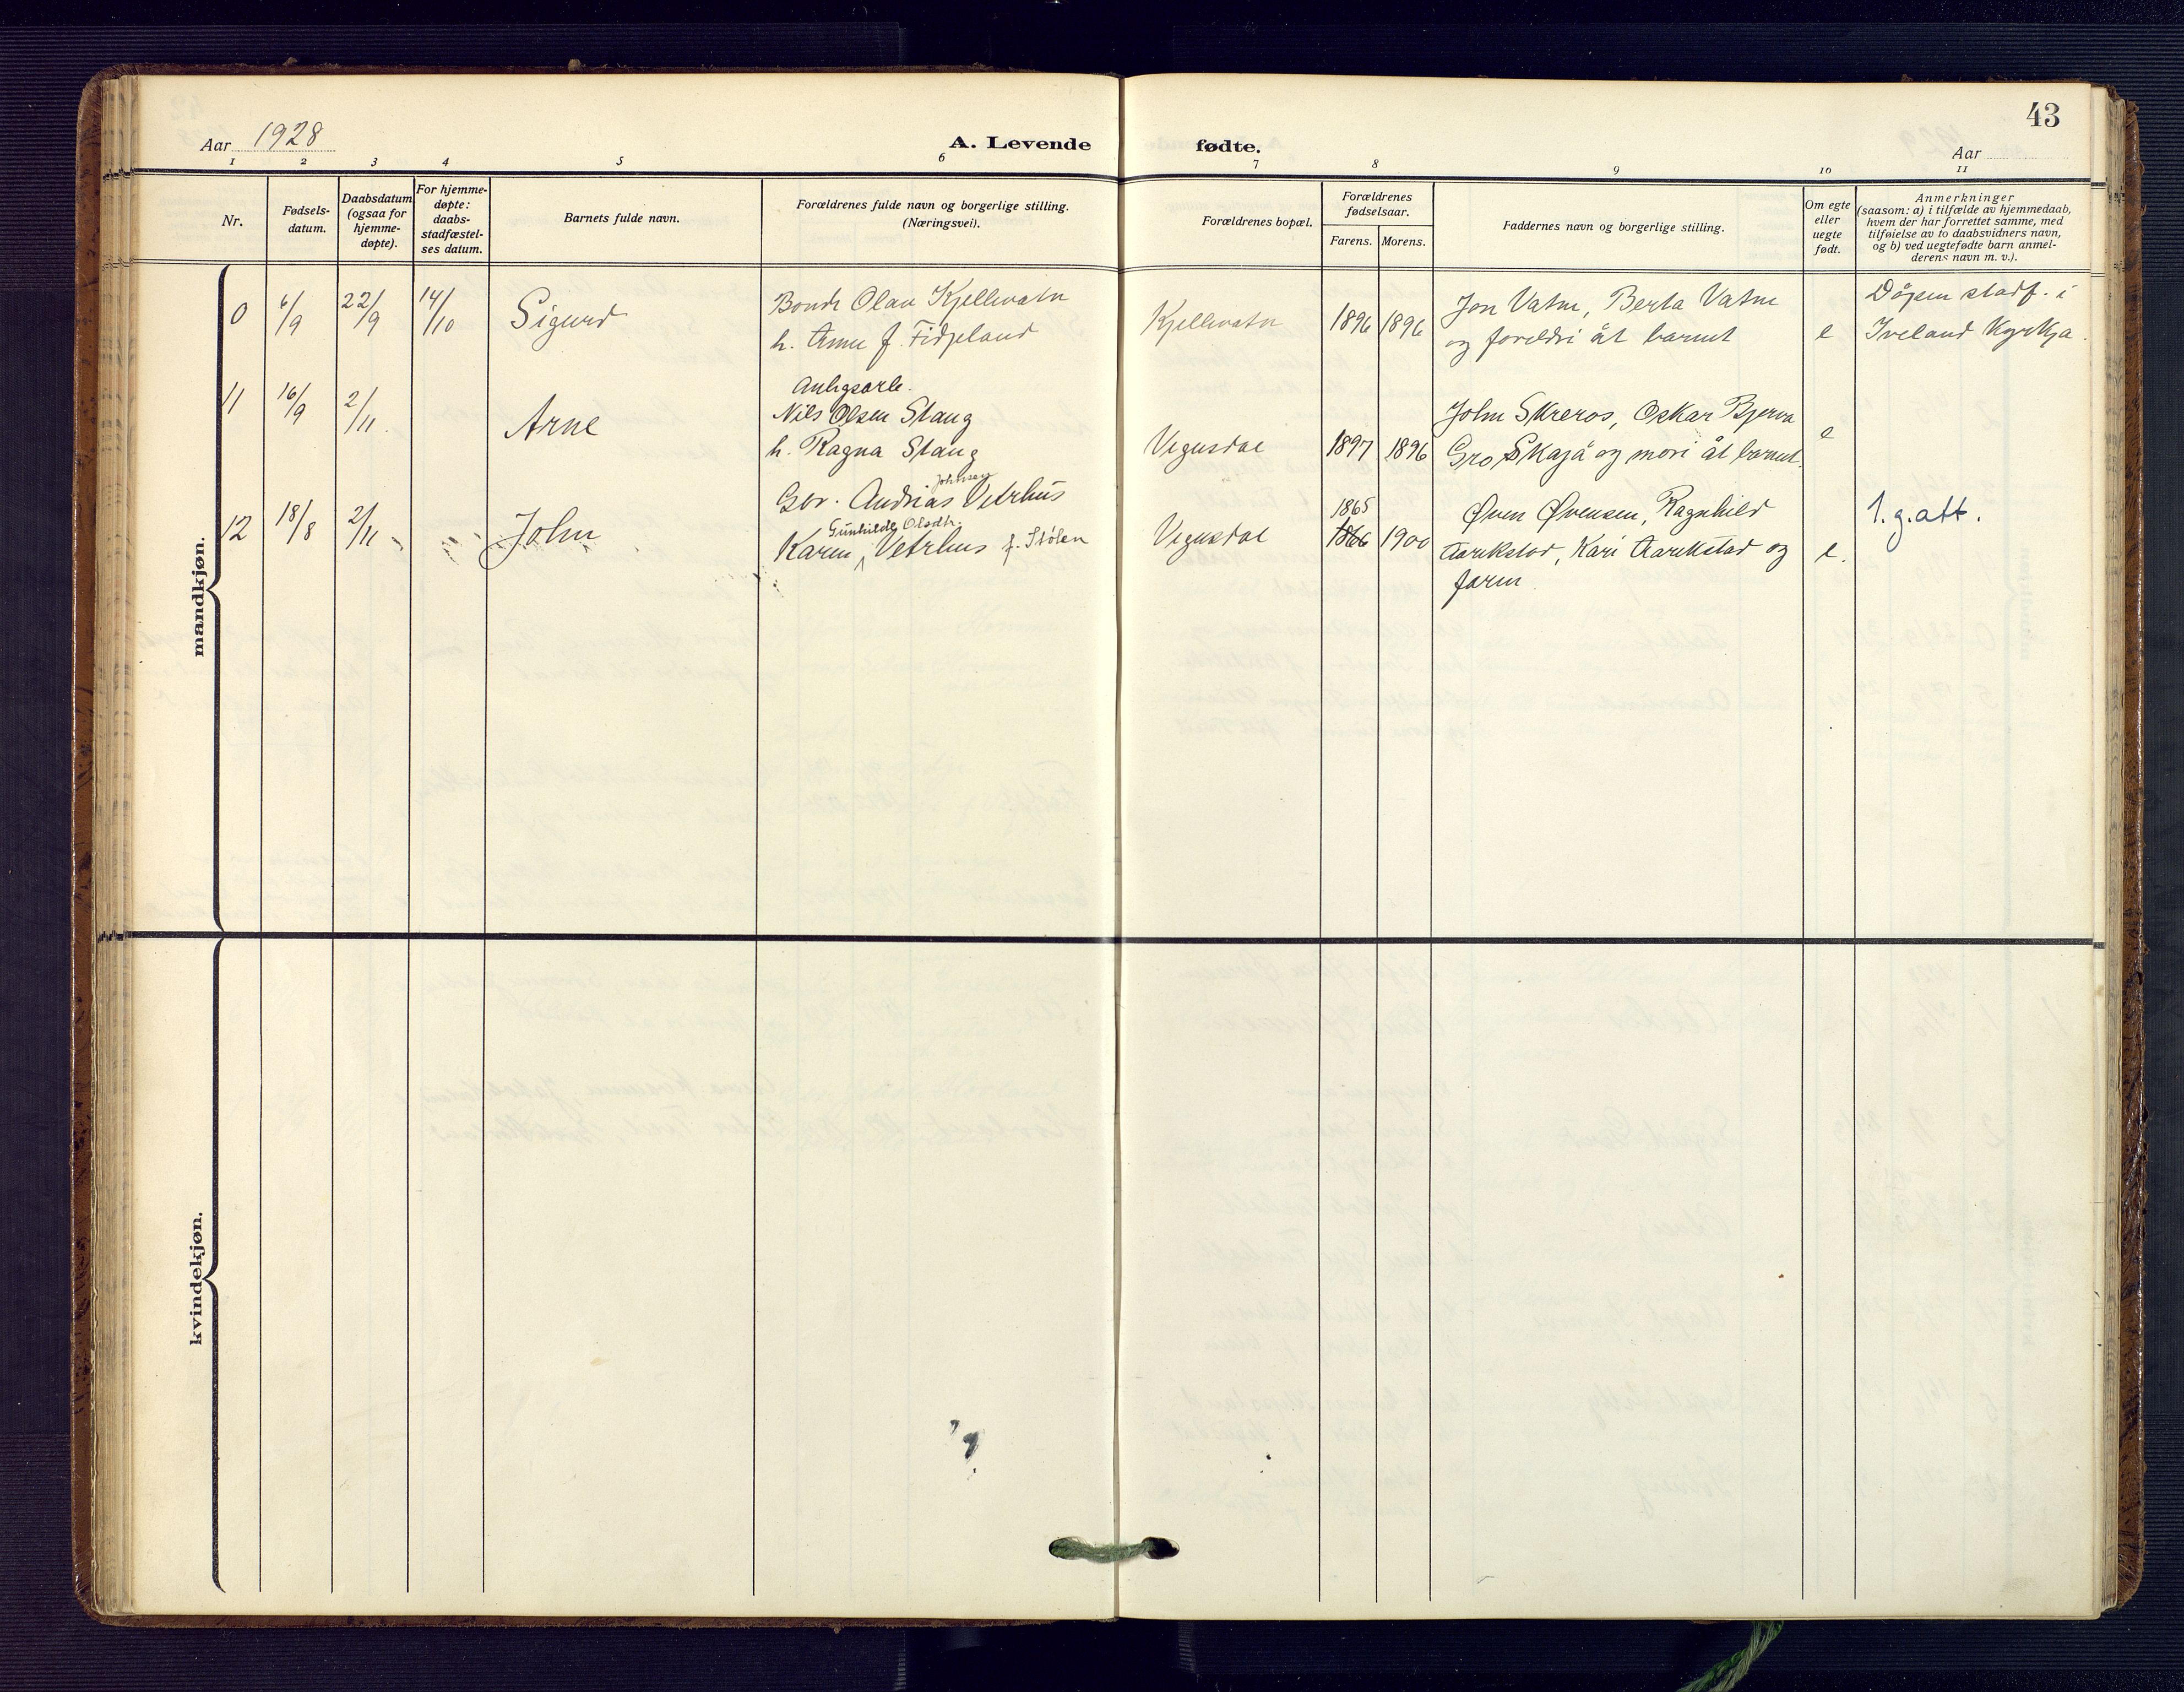 43
Aar 1928
A. Levende fødte.
Aar
1 2 3 4 5 6 7 8 9 10 11
Nr.
Fødsels-
datum.
Daabsdatum
(ogsaa for
hjemme-
døpte).
For hjemme-
døpte:
daabs-
stadfæstel-
ses datum.
Barnets fulde navn.
Forældrenes fulde navn og borgerlige stilling.
(Næringsvei).
Forældrenes bopæl.
Forældrenes
fødselsaar.
Farens. Morens.
Faddernes navn og borgerlige stilling.
Om egte
eller
uegte
født.
Anmerkninger
(saasom: a) i tilfælde av hjemmedaab,
hvem der har forrettet samme, med
tilføielse av to daabsvidners navn,
og b) ved uegtefødte barn anmel-
derens navn m. v.).
mandkjøn.
0 6/9 22/9 14/10 Sigurd
Bonde Olav Kjellevatn
h. Anne f. Fidjeland
Kjellevatn 1896 1896
Jon Vatne, Berta Vatne
og foreldri åt barnet
e
Dåpen stadf. i
Iveland Kyrkja.
11 16/9 2/11. Arne
Anlegsarb.
Nils Olsen Stang
h. Ragna Stang
Vegusdal 1897 1896
John Skreros, Oskar Bjerva
Gro Skajå og mori åt barnet.
e
12 18/8 2/11 John
Johnsen
Gbr. Andrias Vetrhus
Gunhilde Olsdtr.
Karen Vetrhus f. Stølen
Vegusdal
1865
1866 1900
Øven Øvensen, Ragnhild
Aarikstad, Kari Aarikstad og
faren
e.
1. g. att.
kvindekjøn.